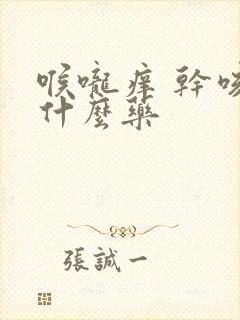 喉嚨痒 幹咳
什麼藥
張誠一